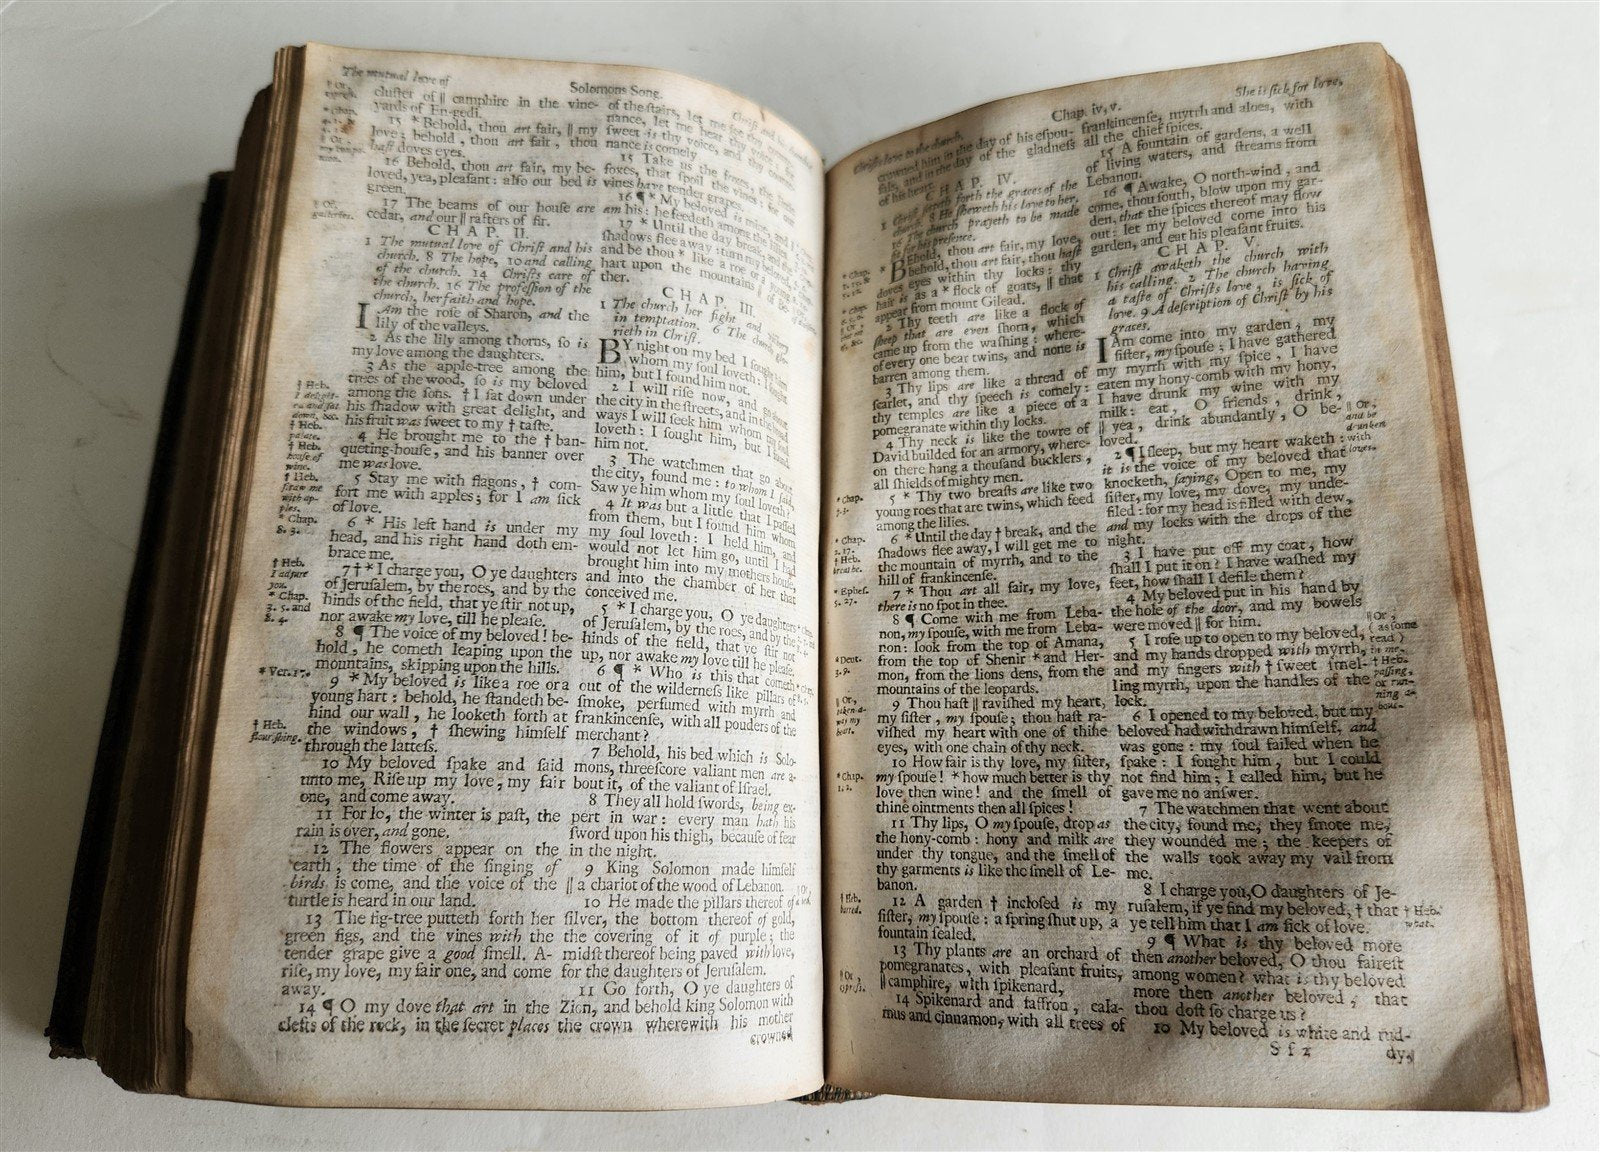 The mutual love of
Solomons Song.
cluſter of || camphire in the vine-
yards of En-gedi.
15 * Behold, thou art fair, || my
love: behold, thou art fair, thou
haſt doves eyes.
16 Behold, thou art fair, my be-
loved, yea, pleaſant: alſo our bed is
green.
17 The beams of our houſe are
cedar, and our || rafters of fir.
CHAP. II.
1 The mutual love of Chriſt and his
church. 8 The hope, 10 and calling
of the church. 14 Chriſts care of
the church. 16 The profeſſion of the
church, her faith and hope.
I Am the roſe of Sharon, and the
lily of the valleys.
2 As the lily among thorns, ſo is
my love among the daughters.
3 As the apple-tree among the
trees of the wood, ſo is my beloved
among the ſons. † I ſat down under
his ſhadow with great delight, and
his fruit was ſweet to my † taſte.
4 He brought me to the † ban-
queting-houſe, and his banner over
me was love.
5 Stay me with flagons, † com-
fort me with apples; for I am ſick
of love.
6 * His left hand is under my
head, and his right hand doth em-
brace me.
7 † * I charge you, O ye daughters
of Jeruſalem, by the roes, and by the
hinds of the field, that ye ſtir not up,
nor awake my love, till he pleaſe.
8 ¶ The voice of my beloved! be-
hold, he cometh leaping upon the
mountains, skipping upon the hills.
9 * My beloved is like a roe or a
young hart: behold, he ſtandeth be-
hind our wall, he looketh forth at
the windows, † ſhewing himſelf
through the latteſs.
10 My beloved ſpake and ſaid
unto me, Riſe up my love, my fair
one, and come away.
11 For lo, the winter is paſt, the
rain is over, and gone.
12 The flowers appear on the
earth, the time of the ſinging of
birds is come, and the voice of the
turtle is heard in our land.
13 The fig-tree putteth forth her
green figs, and the vines with the
tender grape give a good ſmell. A-
riſe, my love, my fair one, and come
away.
14 ¶ O my dove that art in the
clefts of the rock, in the ſecret places
of the ſtairs, let me ſee thy
nance, let me hear thy voice,
ſweet is thy voice, and thy
nance is comely
15 Take us the foxes, the
foxes, that ſpoil the vines: for our
vines have tender grapes.
16 ¶ * My beloved is mine, and I
am his: he feedeth among the
17 * Until the day break, and the
ſhadows flee away: turn my beloved,
and be thou * like a roe or a young
hart upon the mountains || of Be-
ther.
CHAP. III.
1 The church her fight and victory
in temptation. 6 The church glo-
rieth in Chriſt.
BY night on my bed I ſought him
whom my ſoul loveth: I ſought
him, but I found him not.
2 I will riſe now, and go about
the city in the ſtreets, and in the
ways I will ſeek him whom my ſoul
loveth: I ſought him, but I found
him not.
3 The watchmen that go about
the city, found me: to whom I ſaid,
Saw ye him whom my ſoul loveth?
4 It was but a little that I paſſed
from them, but I found him whom
my ſoul loveth: I held him, and
would not let him go, until I had
brought him into my mothers houſe,
and into the chamber of her that
conceived me.
5 * I charge you, O ye daughters
of Jeruſalem, by the roes, and by the
hinds of the field, that ye ſtir not
up, nor awake my love till he pleaſe.
6 ¶ * Who is this that cometh
out of the wilderneſs like pillars of
ſmoke, perfumed with myrrh and
frankincenſe, with all pouders of the
merchant?
7 Behold, his bed which is Solo-
mons, threeſcore valiant men are a-
bout it, of the valiant of Iſrael.
8 They all hold ſwords, being ex-
pert in war: every man hath his
ſword upon his thigh, becauſe of fear
in the night.
9 King Solomon made himſelf
|| a chariot of the wood of Lebanon.
10 He made the pillars thereof of
ſilver, the bottom thereof of gold,
the covering of it of purple; the
midſt thereof being paved with love,
for the daughters of Jeruſalem.
11 Go forth, O ye daughters of
Zion, and behold king Solomon with
the crown wherewith his mother
crowned
† Heb.
palate.
† Heb.
houſe of
wine.
† Heb.
ſtraw me
with ap-
ples.
* Chap.
8. 3.
† Heb.
I adjure
you.
* Chap.
3. 5. and
8. 4.
* Ver. 17.
† Heb.
flouriſhing.
Chriſts love to the church.
Chap. iv, v.
She is ſick for love,
crowned him in the day of his eſpou-
ſals, and in the day of the gladneſs
of his heart.
CHAP. IV.
1 Chriſt ſetteth forth the graces of the
church. 8 He ſheweth his love to her.
16 The church prayeth to be made
fit for his preſence.
* BEhold, thou art fair, my love,
behold, thou art fair, thou haſt
doves eyes within thy locks: thy
hair is as a * flock of goats, || that
appear from mount Gilead.
2 Thy teeth are like a flock of
ſheep that are even ſhorn, which
came up from the waſhing: where-
of every one bear twins, and none is
barren among them.
3 Thy lips are like a thread of
ſcarlet, and thy ſpeech is comely:
thy temples are like a piece of a
pomegranate within thy locks.
4 Thy neck is like the towre of
David builded for an armory, where-
on there hang a thouſand bucklers,
all ſhields of mighty men.
5 * Thy two breaſts are like two
young roes that are twins, which feed
among the lilies.
6 * Until the day † break, and the
ſhadows flee away, I will get me to
the mountain of myrrh, and to the
hill of frankincenſe.
7 * Thou art all fair, my love,
there is no ſpot in thee.
8 ¶ Come with me from Leba-
non, my ſpouſe, with me from Leba-
non: look from the top of Amana,
from the top of Shenir * and Her-
mon, from the lions dens, from the
mountains of the leopards.
9 Thou haſt || raviſhed my heart,
my ſiſter, my ſpouſe; thou haſt ra-
viſhed my heart with one of thine
eyes, with one chain of thy neck.
10 How fair is thy love, my ſiſter,
my ſpouſe! * how much better is thy
love then wine! and the ſmell of
thine ointments then all ſpices!
11 Thy lips, O my ſpouſe, drop as
the hony-comb: hony and milk are
under thy tongue, and the ſmell of
thy garments is like the ſmell of Le-
banon.
12 A garden † incloſed is my
ſiſter, my ſpouſe: a ſpring ſhut up, a
fountain ſealed.
13 Thy plants are an orchard of
pomegranates, with pleaſant fruits,
|| camphire, with ſpikenard,
14 Spikenard and ſaffron, cala-
mus and cinnamon, with all trees of
frankincenſe, myrrh and aloes, with
all the chief ſpices.
15 A fountain of gardens, a well
of living waters, and ſtreams from
Lebanon.
16 ¶ Awake, O north-wind, and
come, thou ſouth, blow upon my gar-
den, that the ſpices thereof may flow
out: let my beloved come into his
garden, and eat his pleaſant fruits.
CHAP. V.
1 Chriſt awaketh the church with
his calling. 2 The church having
a taſte of Chriſts love, is ſick of
love. 9 A deſcription of Chriſt by his
graces.
I Am come into my garden, my
ſiſter, my ſpouſe; I have gathered
my myrrh with my ſpice, I have
eaten my hony-comb with my hony,
I have drunk my wine with my
milk: eat, O friends, drink,
|| yea, drink abundantly, O be-
loved.
2 ¶ I ſleep, but my heart waketh:
it is the voice of my beloved that
knocketh, ſaying, Open to me, my
ſiſter, my love, my dove, my unde-
filed: for my head is filled with dew,
and my locks with the drops of the
night.
3 I have put off my coat, how
ſhall I put it on? I have waſhed my
feet, how ſhall I defile them?
4 My beloved put in his hand by
the hole of the door, and my bowels
were moved || for him.
5 I roſe up to open to my beloved,
and my hands dropped with myrrh,
and my fingers with † ſweet ſmel-
ling myrrh, upon the handles of the
lock.
6 I opened to my beloved, but my
beloved had withdrawn himſelf, and
was gone: my ſoul failed when he
ſpake: I ſought him, but I could
not find him; I called him, but he
gave me no anſwer.
7 The watchmen that went about
the city, found me, they ſmote me,
they wounded me; the keepers of
the walls took away my vail from
me.
8 I charge you, O daughters of Je-
ruſalem, if ye find my beloved, † that
ye tell him that I am ſick of love.
9 ¶ What is thy beloved more
then another beloved, O thou faireſt
among women? what is thy beloved
more then another beloved, that
thou doſt ſo charge us?
10 My beloved is white and rud-
Sſ2
dy,
* Chap.
2. 17.
† Heb.
breathe.
* Epheſ.
5. 27.
* Deut.
3. 9.
|| Or,
taken a-
way my
heart.
* Chap.
1. 2.
† Heb.
barred.
|| Or,
|| Or,
and be
drunken
with
loves.
|| Or,
(as ſome
read)
in me.
† Heb.
paſſing,
or run-
ning a-
bout.
† Heb.
what.